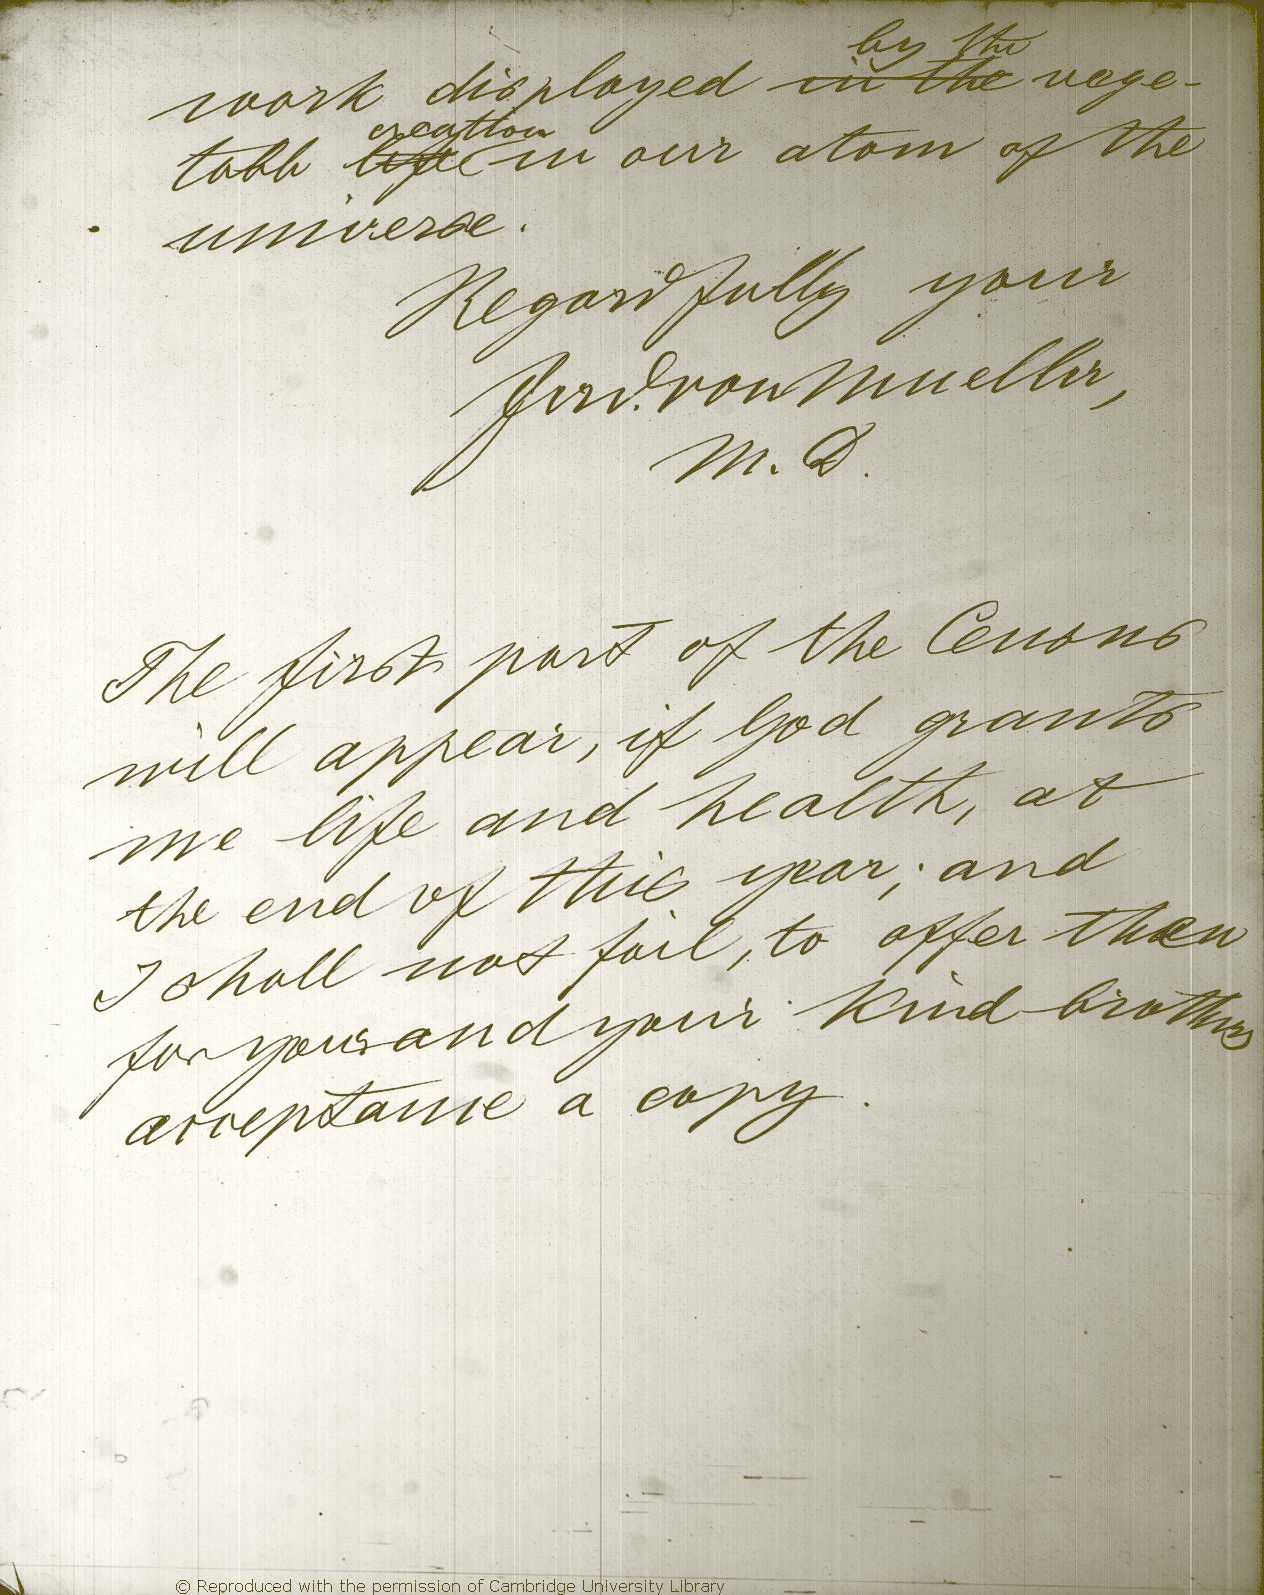 work displayed by the in the vege-
table creation life in our atom of the
universe.
Regardfully your
Ferd. von Mueller,
M. D.
The first part of the Census
will appear, if God grants
me life and health, at
the end of this year; and
I shall not fail, to offer then
for your and your kind brothers
acceptance a copy.
© Reproduced with the permission of Cambridge University Library